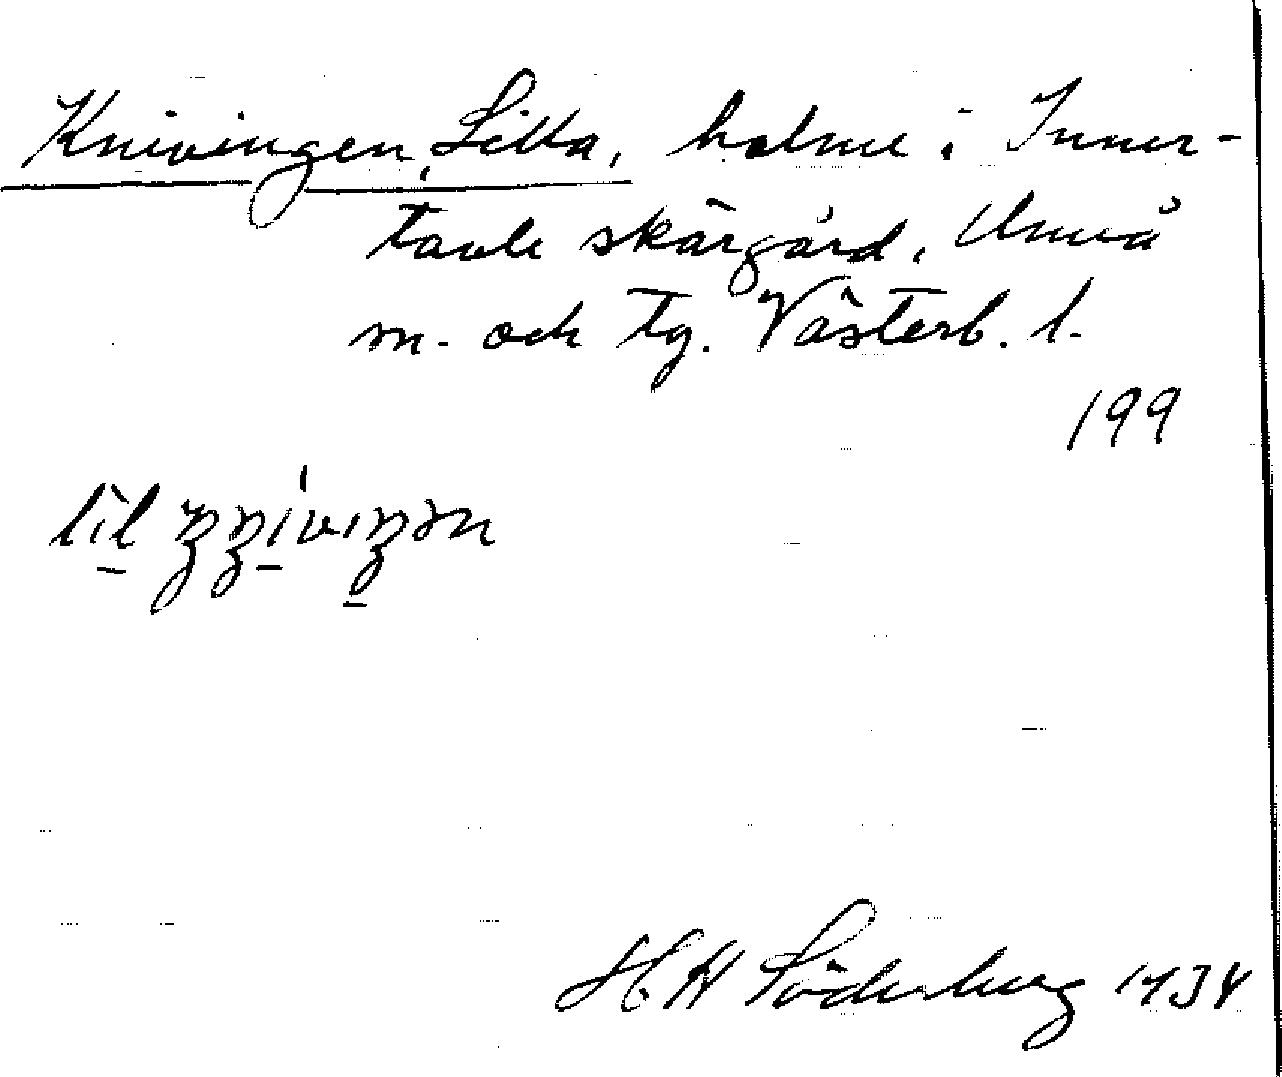 Knivingen, Lilla, holme i Inner-
tavle skärgård, Umeå
m. och tg. Västerb. l.
199
lil
H W Söderberg 1934